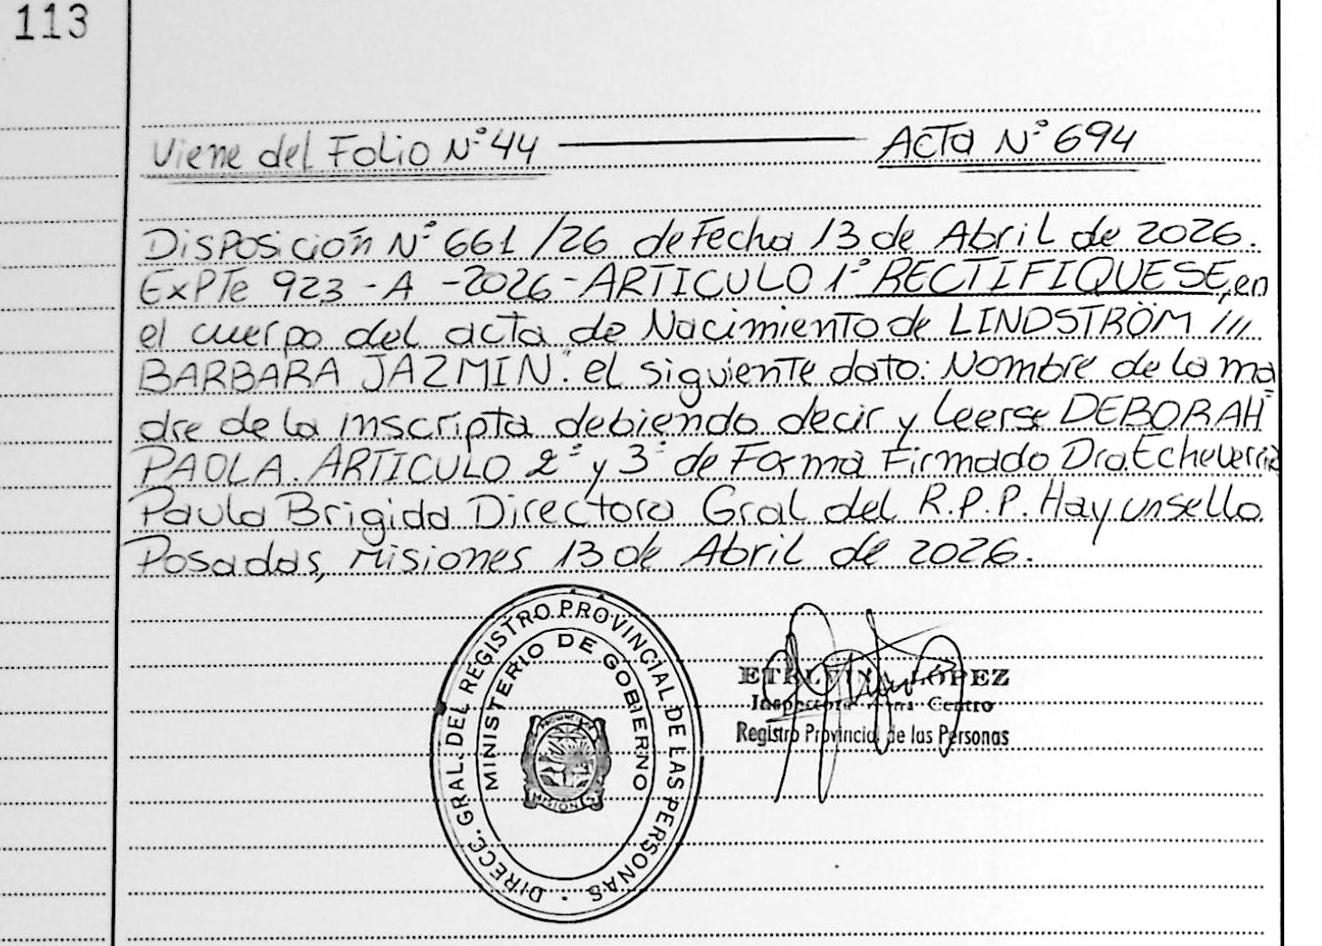 113
Viene del Folio N° 44 ——— Acta N° 694
Disposición N° 661/26 de Fecha 13 de Abril de 2026.
ExPTe 923 - A - 2026 - ARTICULO 1° RECTIFIQUESE, en
el cuerpo del acta de Nacimiento de LINDSTRÖM ///
BARBARA JAZMIN". el siguiente dato: Nombre de la ma
dre de la inscripta debiendo decir y Leerse DEBORAH
PAOLA. ARTICULO 2° y 3° de Forma Firmado Dra. Echeverria
Paula Brigida Directora Gral del R.P.P. Hay un sello.
Posadas, Misiones 13 de Abril de 2026.
DIRECC. GRAL. DEL REGISTRO PROVINCIAL DE LAS PERSONAS
MINISTERIO DE GOBIERNO
MISIONES
LOPEZ
Inspectora Zona Centro
Registro Provincial de las Personas